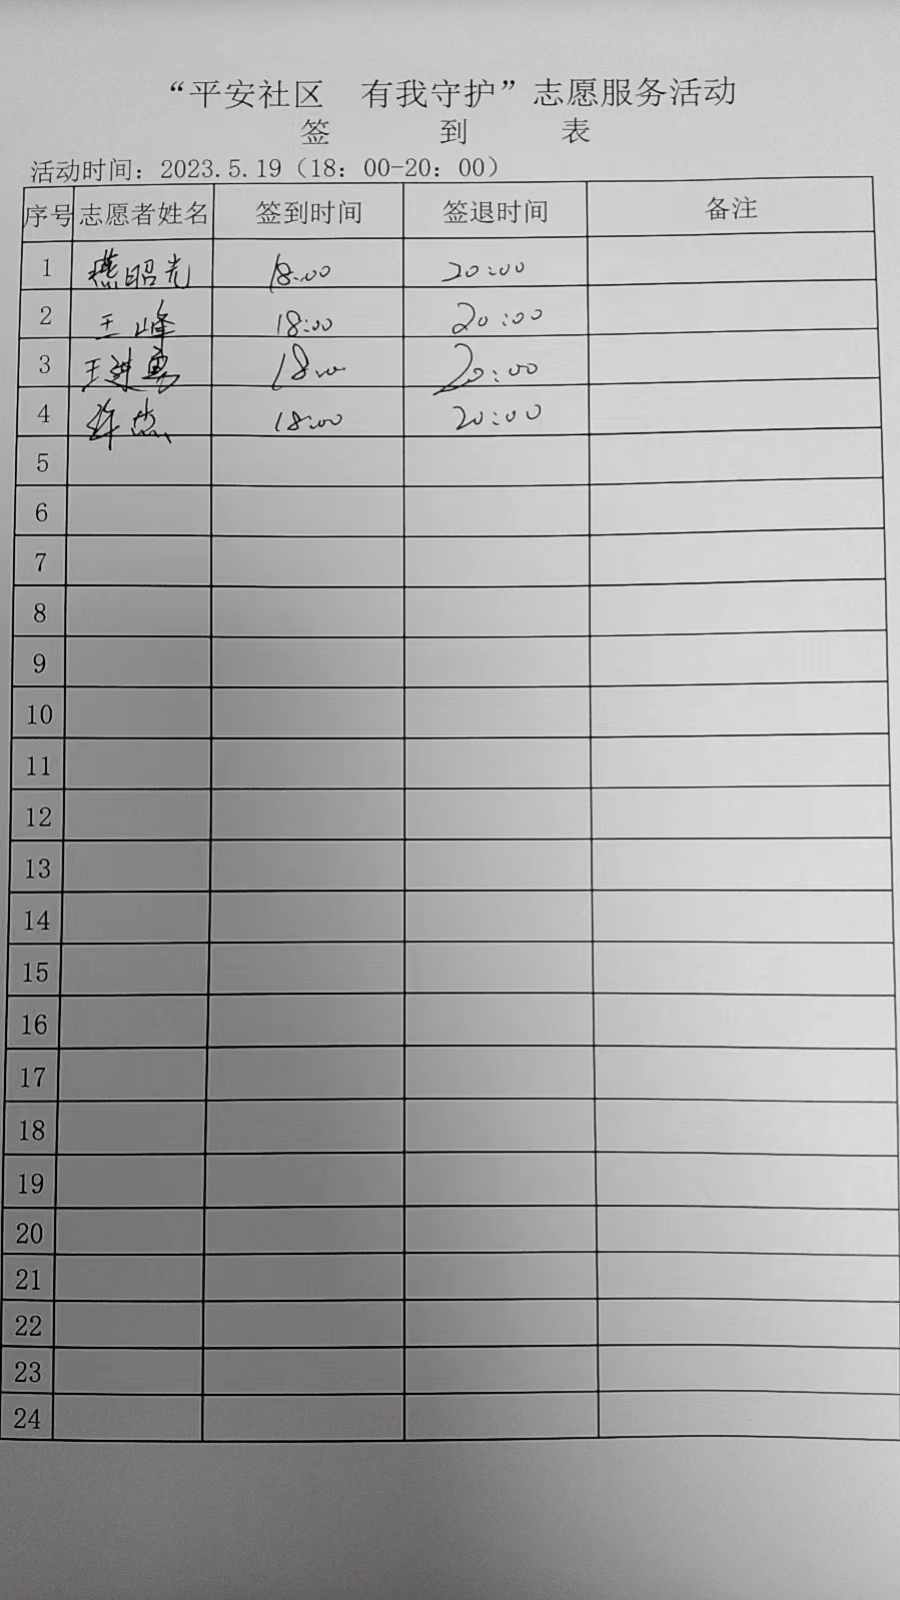 “平安社区 有我守护”志愿服务活动
签 到 表
活动时间：2023.5.19（18：00-20：00）
序号 志愿者姓名 签到时间 签退时间 备注
1 燕昭光 18:00 20:00
2 王峰 18:00 20:00
3 王进勇 18:00 20:00
4 许杰 18:00 20:00
5
6
7
8
9
10
11
12
13
14
15
16
17
18
19
20
21
22
23
24